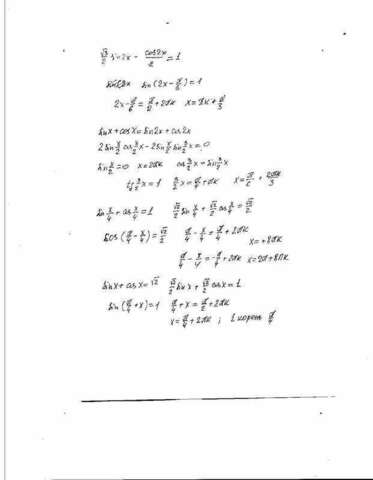 √3/2 sin2x - cos2x/2 = 1
sin(2x - π/6) = 1
2x - π/6 = π/2 + 2πk x = πk + π/3
sin x + cos x = sin2x + cos2x
2 sin x/2 cos 3/2 x - 2 sin x/2 sin 3/2 x = 0
sin x/2 = 0 x = 2πk cos 3/2 x = sin 3/2 x
tg 3/2 x = 1 3/2 x = π/4 + πk x = π/6 + 2πk/3
sin x/4 + cos x/4 = 1 √2/2 sin x/4 + √2/2 cos x/4 = √2/2
cos(π/4 - x/4) = √2/2 π/4 - x/4 = π/4 + 2πk
x = +8πk
π/4 - x/4 = -π/4 + 2πk x = 2π + 8πk
sin x + cos x = √2 √2/2 sin x + √2/2 cos x = 1
sin(π/4 + x) = 1 π/4 + x = π/2 + 2πk
x = π/4 + 2πk ; 1 корень π/4